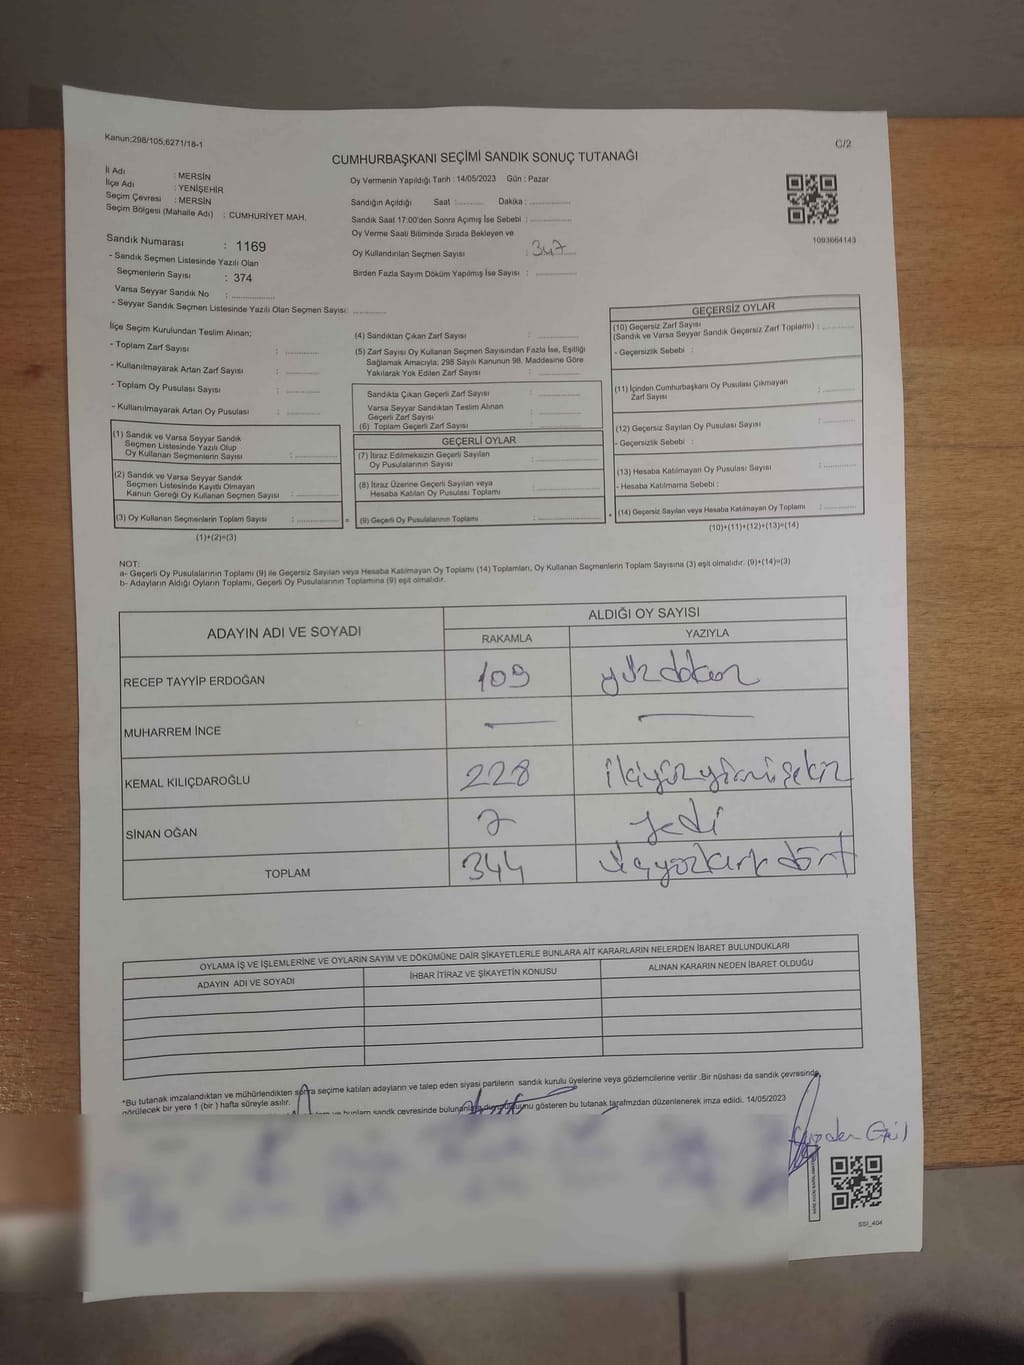 Kanun;298/105,6271/18-1
C/2
CUMHURBAŞKANI SEÇİMİ SANDIK SONUÇ TUTANAĞI
İl Adı : MERSİN
İlçe Adı : YENİŞEHİR
Seçim Çevresi : MERSİN
Seçim Bölgesi (Mahalle Adı) : CUMHURİYET MAH.
Oy Vermenin Yapıldığı Tarih : 14/05/2023 Gün : Pazar
Sandığın Açıldığı Saat :......... Dakika :............
Sandık Saat 17:00'den Sonra Açımış İse Sebebi :............
Oy Verme Saati Bitiminde Sırada Bekleyen ve
Oy Kullandırılan Seçmen Sayısı : 347
Birden Fazla Sayım Döküm Yapılmış İse Sayısı : ............
1093664143
Sandık Numarası : 1169
- Sandık Seçmen Listesinde Yazılı Olan
Seçmenlerin Sayısı : 374
Varsa Seyyar Sandık No : ............
- Seyyar Sandık Seçmen Listesinde Yazılı Olan Seçmen Sayısı: ............
İlçe Seçim Kurulundan Teslim Alınan;
- Toplam Zarf Sayısı : ............
- Kullanılmayarak Artan Zarf Sayısı : ............
- Toplam Oy Pusulası Sayısı : ............
- Kullanılmayarak Artan Oy Pusulası : ............
(1) Sandık ve Varsa Seyyar Sandık
Seçmen Listesinde Yazılı Olup
Oy Kullanan Seçmenlerin Sayısı : ............
(2) Sandık ve Varsa Seyyar Sandık
Seçmen Listesinde Kayıtlı Olmayan
Kanun Gereği Oy Kullanan Seçmen Sayısı : ............
(3) Oy Kullanan Seçmenlerin Toplam Sayısı : ............
(1)+(2)=(3)
(4) Sandıktan Çıkan Zarf Sayısı : ............
(5) Zarf Sayısı Oy Kullanan Seçmen Sayısından Fazla İse, Eşitliği
Sağlamak Amacıyla; 298 Sayılı Kanunun 98. Maddesine Göre
Yakılarak Yok Edilen Zarf Sayısı : ............
Sandıkta Çıkan Geçerli Zarf Sayısı : ............
Varsa Seyyar Sandıktan Teslim Alınan
Geçerli Zarf Sayısı : ............
(6) Toplam Geçerli Zarf Sayısı : ............
GEÇERLİ OYLAR
(7) İtiraz Edilmeksizin Geçerli Sayılan
Oy Pusulalarının Sayısı : ............
(8) İtiraz Üzerine Geçerli Sayılan veya
Hesaba Katılan Oy Pusulası Toplamı : ............
= (9) Geçerli Oy Pusulalarının Toplamı : ............ +
GEÇERSİZ OYLAR
(10) Geçersiz Zarf Sayısı
(Sandık ve Varsa Seyyar Sandık Geçersiz Zarf Toplamı) : ............
- Geçersizlik Sebebi :
(11) İçinden Cumhurbaşkanı Oy Pusulası Çıkmayan
Zarf Sayısı : ............
(12) Geçersiz Sayılan Oy Pusulası Sayısı : ............
- Geçersizlik Sebebi :
(13) Hesaba Katılmayan Oy Pusulası Sayısı : ............
- Hesaba Katılmama Sebebi :
(14) Geçersiz Sayılan veya Hesaba Katılmayan Oy Toplamı : ............
(10)+(11)+(12)+(13)=(14)
NOT:
a- Geçerli Oy Pusulalarının Toplamı (9) ile Geçersiz Sayılan veya Hesaba Katılmayan Oy Toplamı (14) Toplamları, Oy Kullanan Seçmenlerin Toplam Sayısına (3) eşit olmalıdır. (9)+(14)=(3)
b- Adayların Aldığı Oyların Toplamı, Geçerli Oy Pusulalarının Toplamına (9) eşit olmalıdır.
ADAYIN ADI VE SOYADI
ALDIĞI OY SAYISI
RAKAMLA YAZIYLA
RECEP TAYYİP ERDOĞAN 109 yüzdokuz
MUHARREM İNCE — —
KEMAL KILIÇDAROĞLU 228 ikiyüzyirmisekiz
SİNAN OĞAN 7 yedi
TOPLAM 344 üçyüzkırkdört
OYLAMA İŞ VE İŞLEMLERİNE VE OYLARIN SAYIM VE DÖKÜMÜNE DAİR ŞİKAYETLERLE BUNLARA AİT KARARLARIN NELERDEN İBARET BULUNDUKLARI
ADAYIN ADI VE SOYADI İHBAR İTİRAZ VE ŞİKAYETİN KONUSU ALINAN KARARIN NEDEN İBARET OLDUĞU
*Bu tutanak imzalandıktan ve mühürlendikten sonra seçime katılan adayların ve talep eden siyasi partilerin sandık kurulu üyelerine veya gözlemcilerine verilir .Bir nüshası da sandık çevresinde,
görülecek bir yere 1 (bir ) hafta süreyle asılır.
bunların sandık çevresinde gösteren bu tutanak tarafımızdan düzenlenerek imza edildi. 14/05/2023
SSİ_404